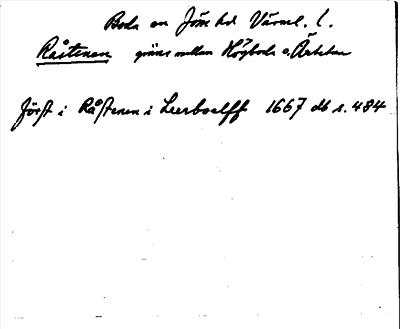 Boda sn Jösse hd Värml. l.
Råstenen gräns mellan Högboda o. Ärtetan
först i Råstenen i Leerboelff 1667 db s. 484